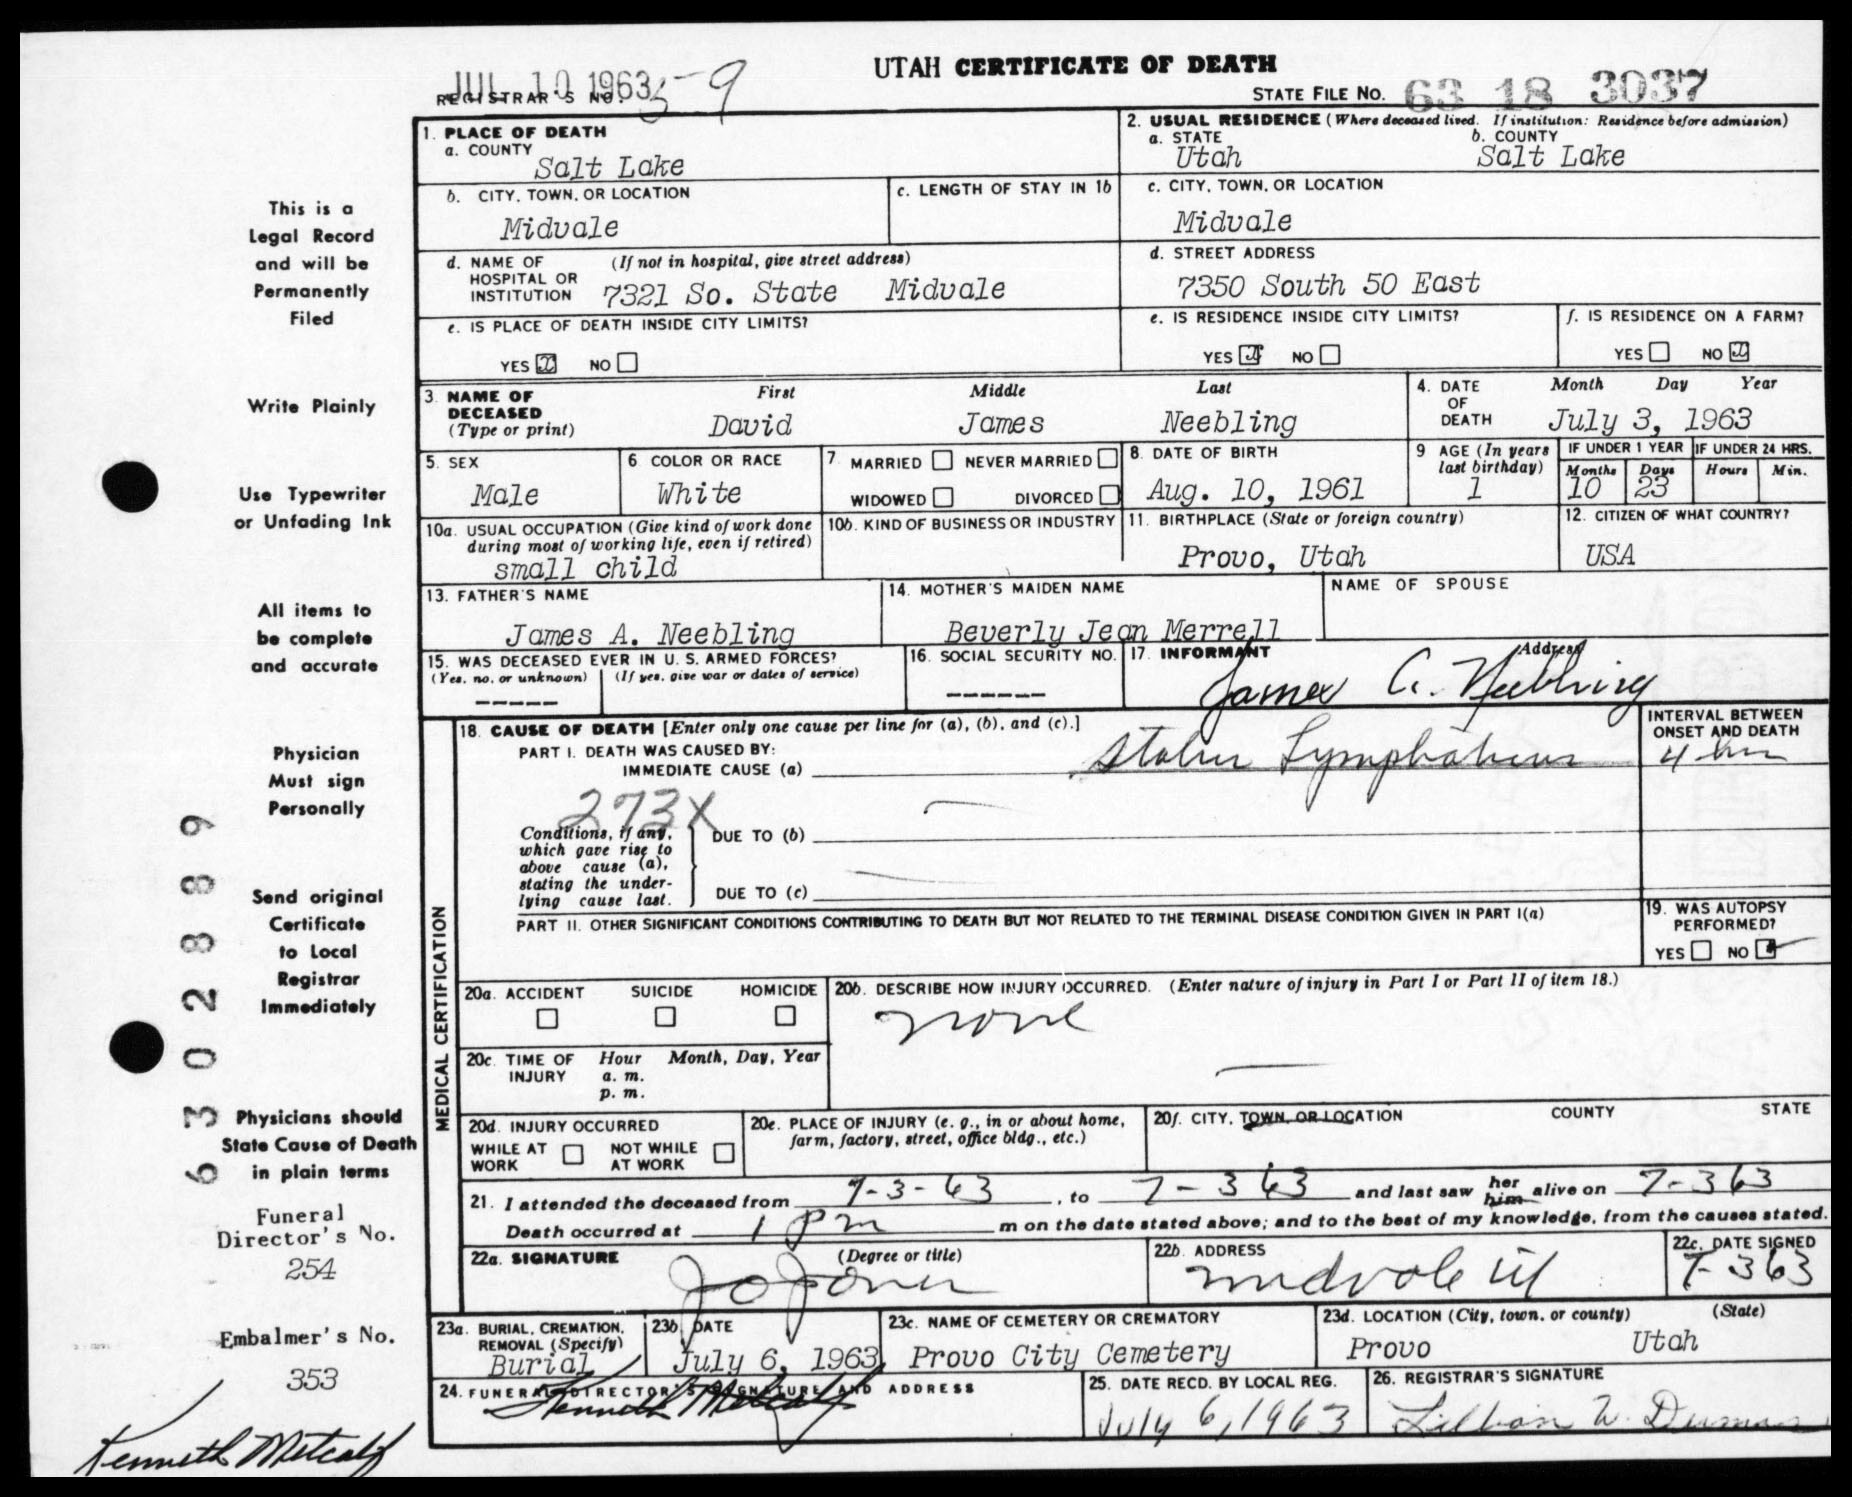 UTAH CERTIFICATE OF DEATH
JUL 10 1963
REGISTRAR'S NO. 59
STATE FILE NO. 63 18 3037
1. PLACE OF DEATH
a. COUNTY
Salt Lake
2. USUAL RESIDENCE (Where deceased lived. If institution: Residence before admission)
a. STATE b. COUNTY
Utah Salt Lake
b. CITY, TOWN, OR LOCATION
Midvale
c. LENGTH OF STAY IN 1b
c. CITY, TOWN, OR LOCATION
Midvale
d. NAME OF HOSPITAL OR INSTITUTION (If not in hospital, give street address)
7321 So. State Midvale
d. STREET ADDRESS
7350 South 50 East
e. IS PLACE OF DEATH INSIDE CITY LIMITS?
YES x NO
e. IS RESIDENCE INSIDE CITY LIMITS?
YES x NO
f. IS RESIDENCE ON A FARM?
YES NO x
3. NAME OF DECEASED (Type or print)
First Middle Last
David James Neebling
4. DATE OF DEATH
Month Day Year
July 3, 1963
5. SEX
Male
6 COLOR OR RACE
White
7. MARRIED NEVER MARRIED
WIDOWED DIVORCED
8. DATE OF BIRTH
Aug. 10, 1961
9 AGE (In years last birthday)
1
IF UNDER 1 YEAR
Months Days
10 23
IF UNDER 24 HRS.
Hours Min.
10a. USUAL OCCUPATION (Give kind of work done during most of working life, even if retired)
small child
10b. KIND OF BUSINESS OR INDUSTRY
11. BIRTHPLACE (State or foreign country)
Provo, Utah
12. CITIZEN OF WHAT COUNTRY?
USA
13. FATHER'S NAME
James A. Neebling
14. MOTHER'S MAIDEN NAME
Beverly Jean Merrell
NAME OF SPOUSE
15. WAS DECEASED EVER IN U. S. ARMED FORCES?
(Yes, no, or unknown) (If yes, give war or dates of service)
-----
16. SOCIAL SECURITY NO.
------
17. INFORMANT Address
James A. Neebling
MEDICAL CERTIFICATION
18. CAUSE OF DEATH [Enter only one cause per line for (a), (b), and (c).]
PART I. DEATH WAS CAUSED BY:
IMMEDIATE CAUSE (a) Status Lymphaticus
INTERVAL BETWEEN ONSET AND DEATH
4 hrs
273X
Conditions, if any, which gave rise to above cause (a), stating the underlying cause last.
DUE TO (b)
DUE TO (c)
PART II. OTHER SIGNIFICANT CONDITIONS CONTRIBUTING TO DEATH BUT NOT RELATED TO THE TERMINAL DISEASE CONDITION GIVEN IN PART I(a)
19. WAS AUTOPSY PERFORMED?
YES NO
20a. ACCIDENT SUICIDE HOMICIDE
20b. DESCRIBE HOW INJURY OCCURRED. (Enter nature of injury in Part I or Part II of item 18.)
none
20c. TIME OF INJURY
Hour Month, Day, Year
a. m.
p. m.
20d. INJURY OCCURRED
WHILE AT WORK NOT WHILE AT WORK
20e. PLACE OF INJURY (e. g., in or about home, farm, factory, street, office bldg., etc.)
20f. CITY, TOWN, OR LOCATION COUNTY STATE
21. I attended the deceased from 7-3-63, to 7-3 63 and last saw her him alive on 7-3 63
Death occurred at 1 pm m on the date stated above; and to the best of my knowledge, from the causes stated.
22a. SIGNATURE (Degree or title)
J O Jones
22b. ADDRESS
Midvale Ut
22c. DATE SIGNED
7-3 63
23a. BURIAL, CREMATION, REMOVAL (Specify)
Burial
23b. DATE
July 6, 1963
23c. NAME OF CEMETERY OR CREMATORY
Provo City Cemetery
23d. LOCATION (City, town, or county) (State)
Provo Utah
24. FUNERAL DIRECTOR'S SIGNATURE AND ADDRESS
Kenneth Metcalf
25. DATE RECD. BY LOCAL REG.
July 6, 1963
26. REGISTRAR'S SIGNATURE
Lillian W.
This is a
Legal Record
and will be
Permanently
Filed
Write Plainly
Use Typewriter
or Unfading Ink
All items to
be complete
and accurate
Physician
Must sign
Personally
Send original
Certificate
to Local
Registrar
Immediately
Physicians should
State Cause of Death
in plain terms
Funeral
Director's No.
254
Embalmer's No.
353
Kenneth Metcalf
6302889